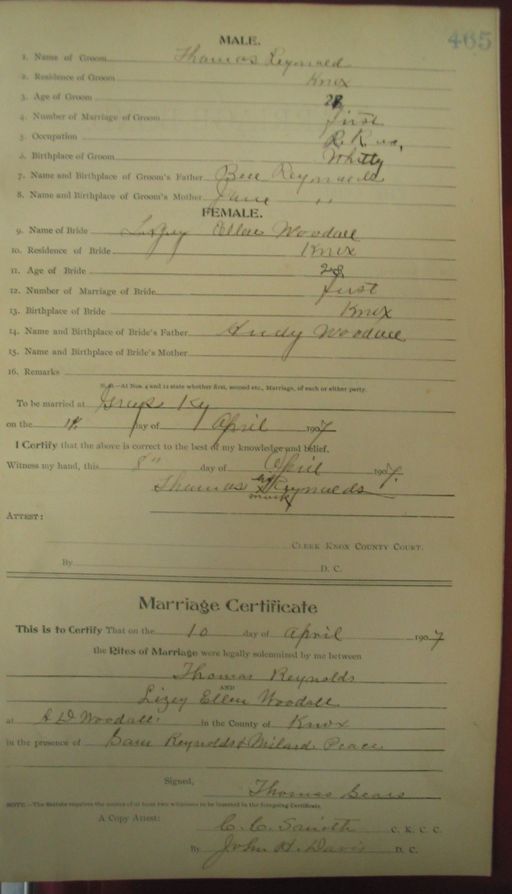 465
MALE.
1. Name of Groom Thomas Reynolds
2. Residence of Groom Knox
3. Age of Groom
4. Number of Marriage of Groom First
5. Occupation R. R.
6. Birthplace of Groom Whitly
7. Name and Birthplace of Groom's Father Ben Reynolds
8. Name and Birthplace of Groom's Mother Jane "
FEMALE.
9. Name of Bride Lizey Ellen Woodall
10. Residence of Bride Knox
11. Age of Bride 28
12. Number of Marriage of Bride First
13. Birthplace of Bride Knox
14. Name and Birthplace of Bride's Father Andy Woodall
15. Name and Birthplace of Bride's Mother
16. Remarks
N. B.—At Nos. 4 and 12 state whether first, second etc., Marriage, of each or either party.
To be married at Grays Ky
on the day of April 1907
I Certify that the above is correct to the best of my knowledge and belief.
Witness my hand, this 8" day of April 1907.
Thomas his x mark Reynolds
ATTEST:
CLERK KNOX COUNTY COURT.
By D. C.
Marriage Certificate
This is to Certify That on the 10 day of April 1907
the Rites of Marriage were legally solemnized by me between
Thomas Reynolds
AND
Lizey Ellen Woodall
at A D Woodall in the County of Knox
in the presence of Sam Reynolds & Milard Peace
Signed, Thomas Sears
NOTE.—The Statute requires the names of at least two witnesses to be inserted in the foregoing Certificate.
A Copy Attest: C. C. Smith C. K. C. C.
By John H. Davis D. C.